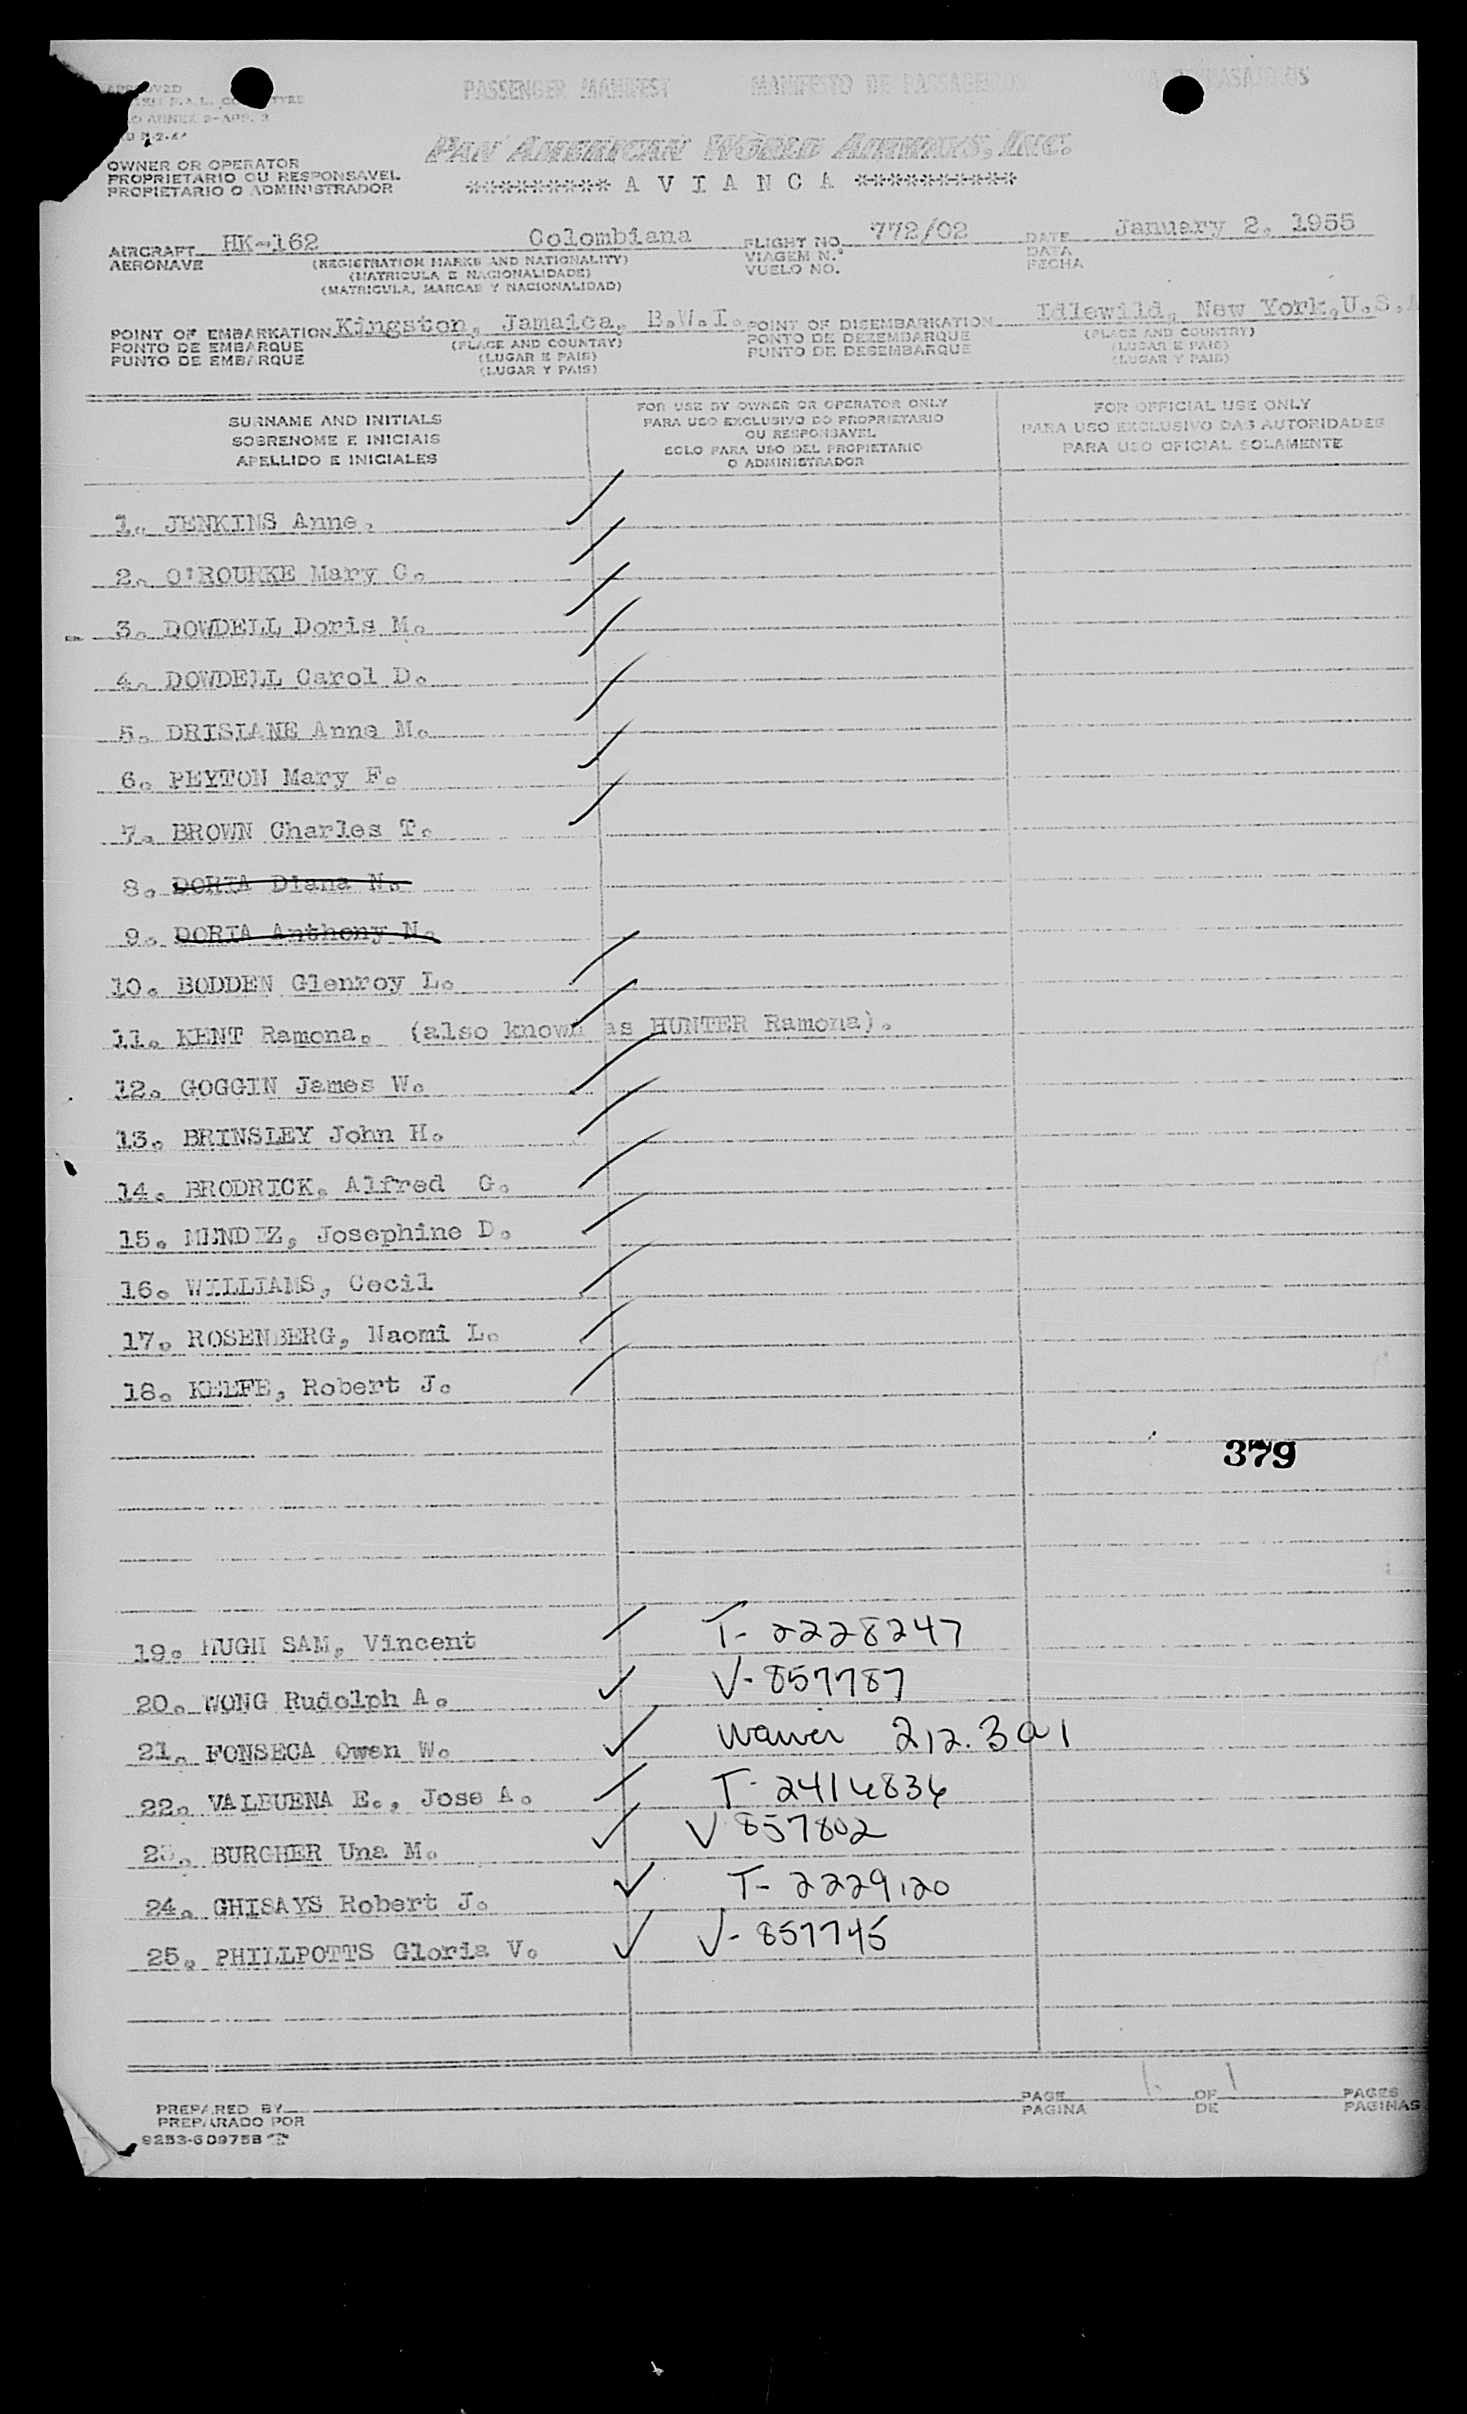 PASSENGER MANIFEST MANIFESTO DE PASSAGEIROS
PAN AMERICAN WORLD AIRWAYS, INC.
********* A V I A N C A **********
OWNER OR OPERATOR
PROPRIETARIO OU RESPONSAVEL
PROPIETARIO O ADMINISTRADOR
AIRCRAFT HK-162 Colombiana FLIGHT NO. 772/02 DATE January 2, 1955
AERONAVE (REGISTRATION MARKS AND NATIONALITY) VIAGEM N.º DATA
(MATRICULA E NACIONALIDADE) VUELO NO. FECHA
(MATRICULA, MARCAS Y NACIONALIDAD)
POINT OF EMBARKATION Kingston, Jamaica, B.W.I. POINT OF DISEMBARKATION Idlewild, New York, U.S.A
PONTO DE EMBARQUE (PLACE AND COUNTRY) PONTO DE DEZEMBARQUE (PLACE AND COUNTRY)
PUNTO DE EMBARQUE (LUGAR E PAIS) PUNTO DE DESEMBARQUE (LUGAR E PAIS)
(LUGAR Y PAIS) (LUGAR Y PAIS)
SURNAME AND INITIALS
SOBRENOME E INICIAIS
APELLIDO E INICIALES
FOR USE BY OWNER OR OPERATOR ONLY
PARA USO EXCLUSIVO DO PROPRIETARIO
OU RESPONSAVEL
SOLO PARA USO DEL PROPIETARIO
O ADMINISTRADOR
FOR OFFICIAL USE ONLY
PARA USO EXCLUSIVO DAS AUTORIDADES
PARA USO OFICIAL SOLAMENTE
1. JENKINS Anne.
2. O'ROURKE Mary C.
3. DOWDELL Doris M.
4. DOWDELL Carol D.
5. DRISLANE Anne M.
6. PEYTON Mary F.
7. BROWN Charles T.
8. DORTA Diana N.
9. DORTA Anthony N.
10. BODDEN Glenroy L.
11. KENT Ramona. (also known as HUNTER Ramona).
12. GOGGIN James W.
13. BRINSLEY John H.
14. BRODRICK, Alfred G.
15. MENDEZ, Josephine D.
16. WILLIAMS, Cecil
17. ROSENBERG, Naomi L.
18. KEEFE, Robert J.
379
19. HUGH SAM, Vincent T- 2228247
20. WONG Rudolph A. V- 857787
21. FONSECA Owen W. Waiver 212.3a1
22. VALBUENA E., Jose A. T- 2414836
23. BURGHER Una M. V 857802
24. GHISAYS Robert J. T- 2229120
25. PHILLPOTTS Gloria V. V- 857745
PREPARED BY PAGE 1. OF 1 PAGES
PREPARADO POR PAGINA DE PAGINAS
9253-609758